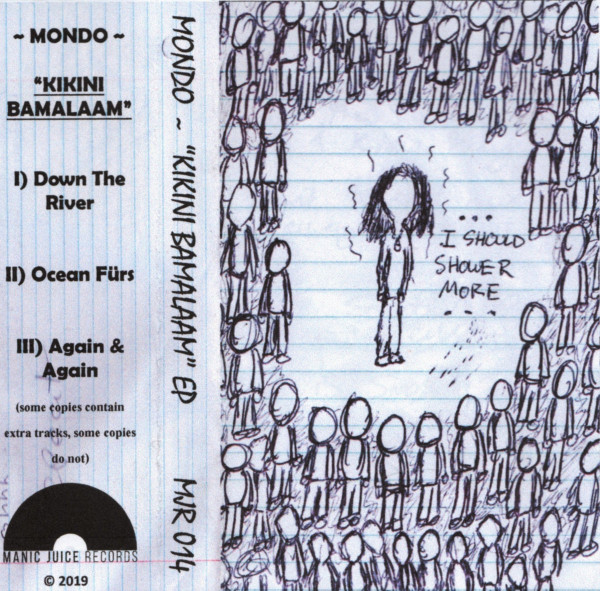 ~ MONDO ~
"KIKINI
BAMALAAM"
I) Down The
River
II) Ocean Fürs
III) Again &
Again
(some copies contain
extra tracks, some copies
do not)
MANIC JUICE RECORDS
© 2019
MONDO ~ "KIKINI BAMALAAM" EP MJR 014
...
I SHOULD
SHOWER
MORE
....